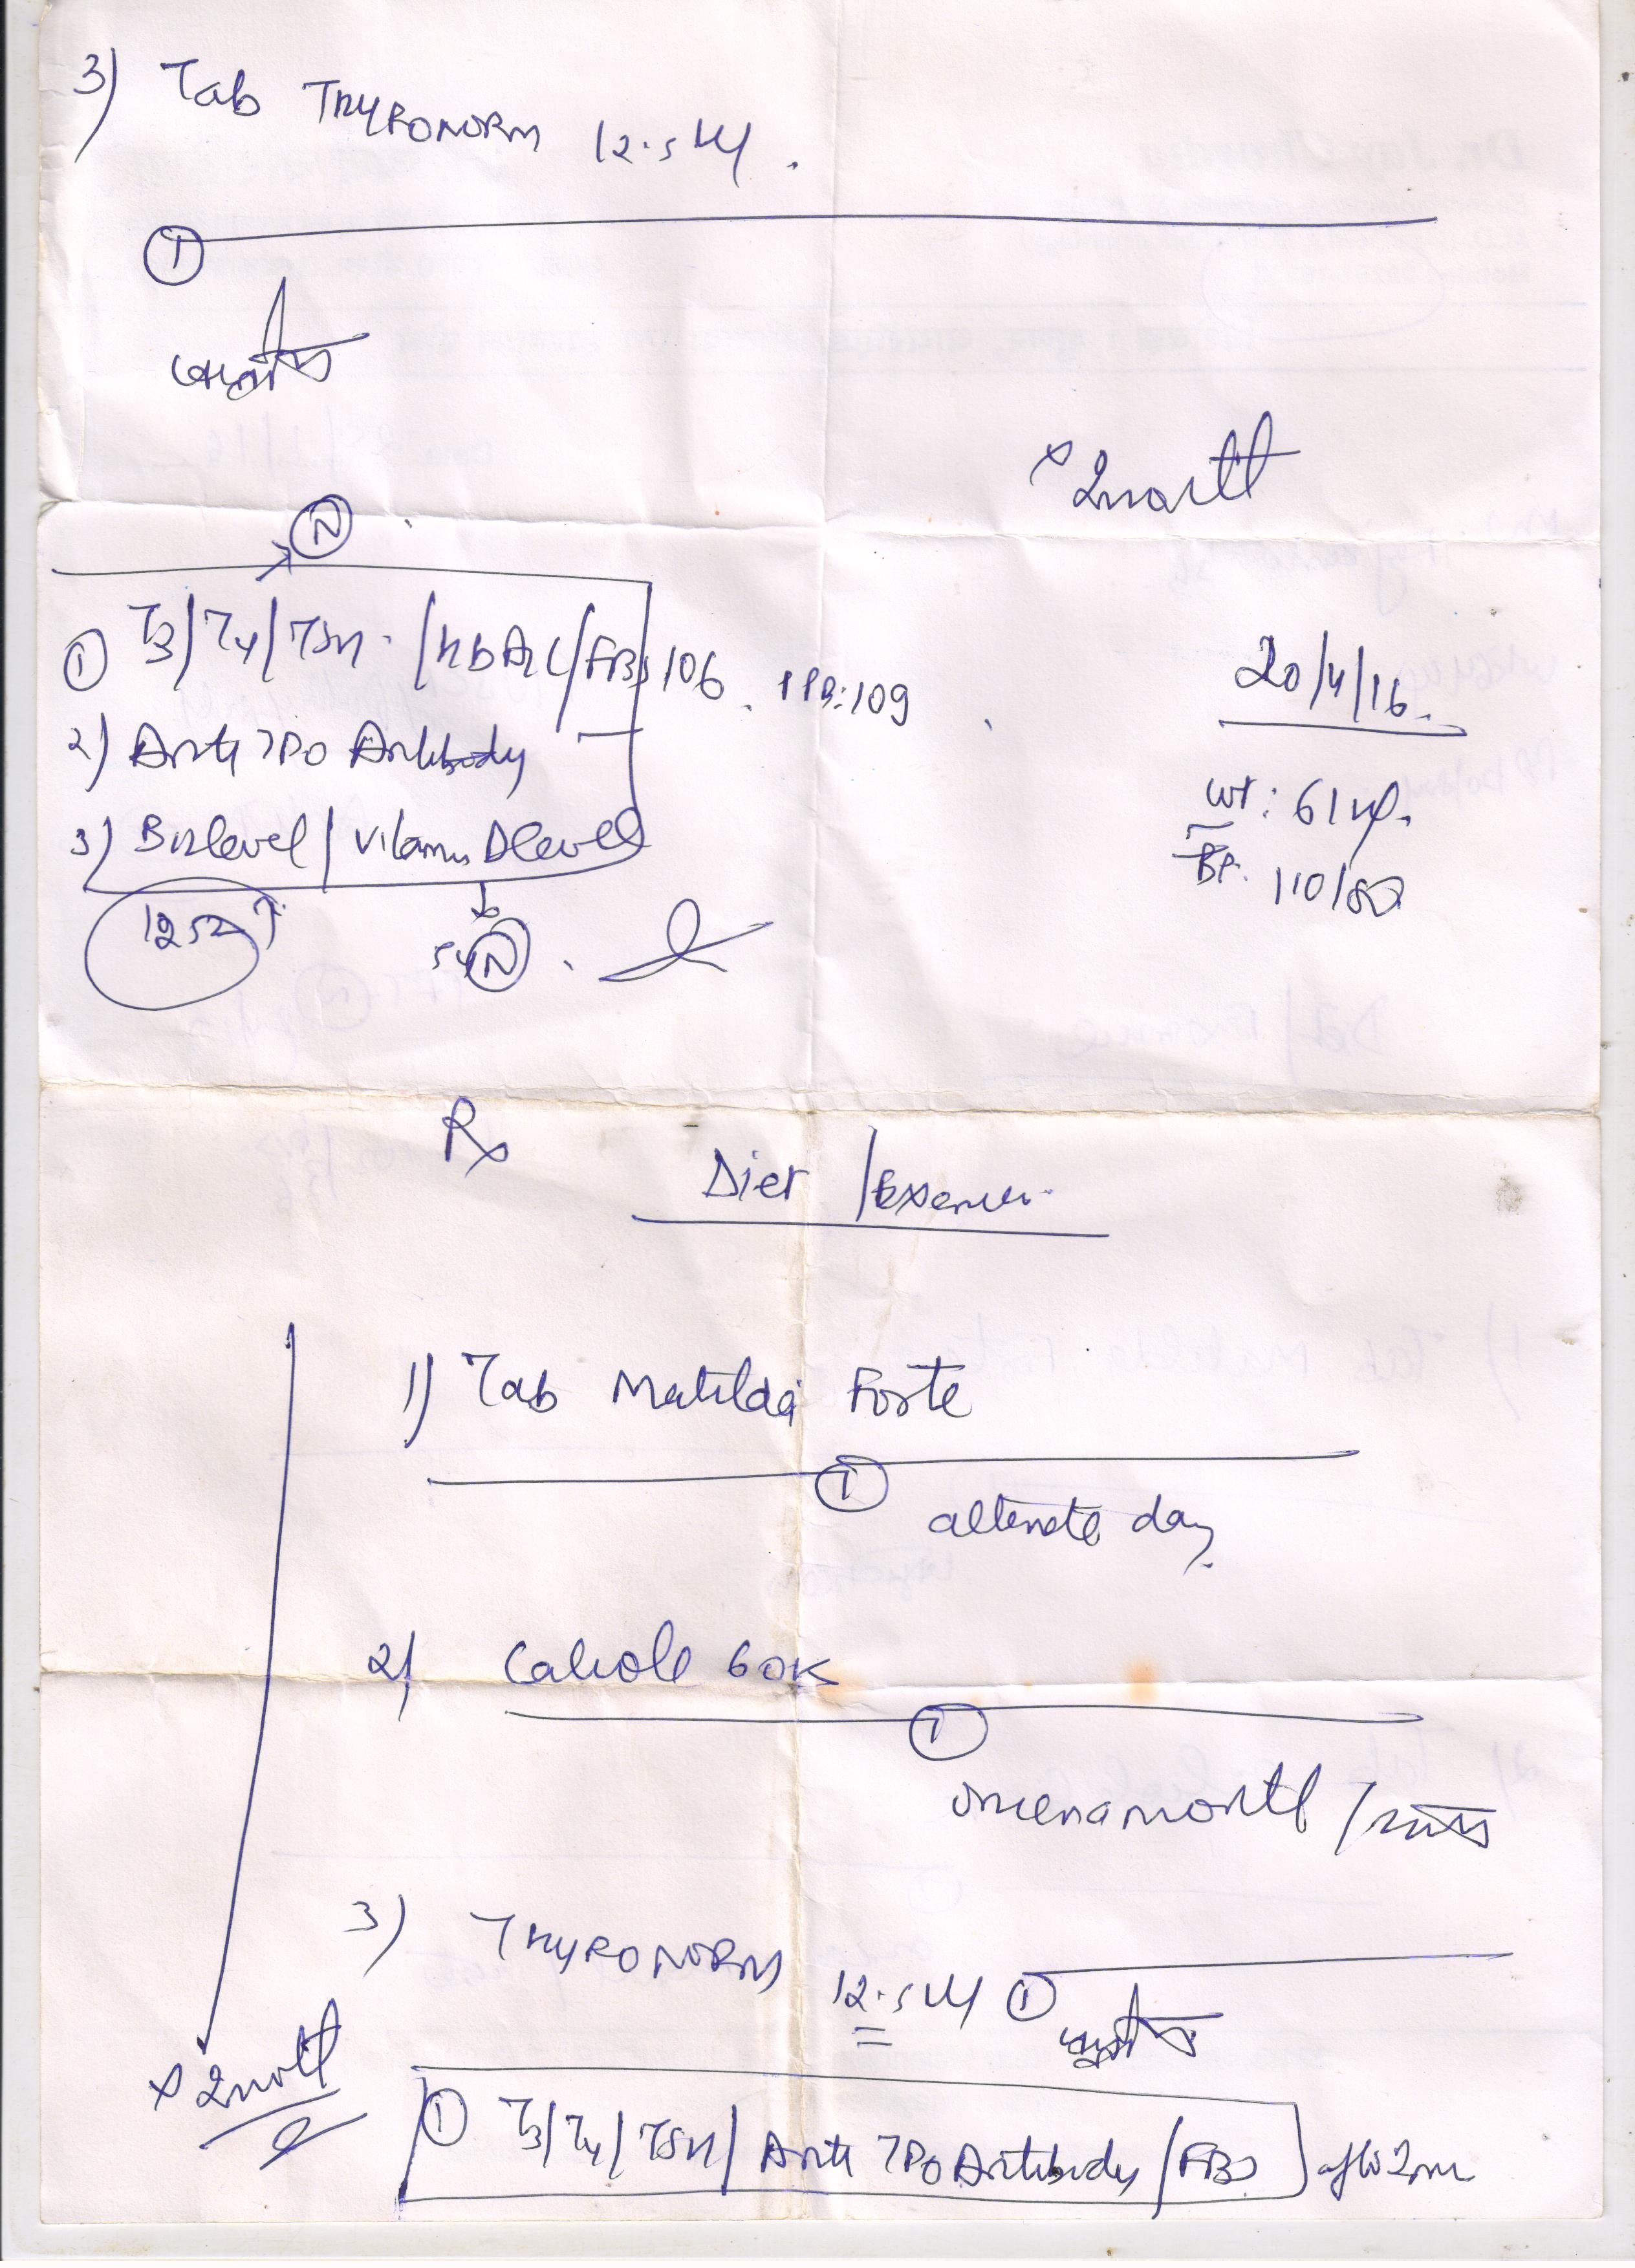 3) Tab THYRONORM 12.5 ug.
①
x 2 month
Ⓝ
① T3/T4/TSH /HbA1c/FBS 106. PPBS:109
2) Anti TPO Antibody
3) B12 level / Vitamin D level
1252 ↑
54 Ⓝ.
20/4/16.
Wt: 61 kg.
BP. 110/80
Rx
Diet /Exercise
1) Tab Matilda Forte
① alternate day
2) Calirol 60K
① once a month /
3) THYRONORM 12.5 ug ①
x 2 month
① T3/T4/TSH/ Anti TPO Antibody /FBS after 2m